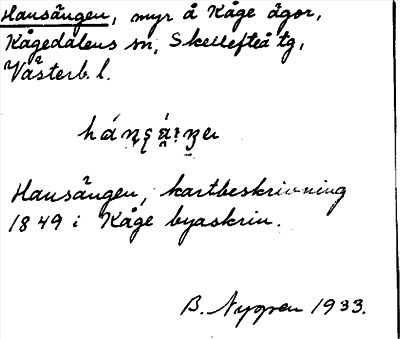 Hansängen, myr å Kåge ägor,
Kågedalens sn, Skellefteå tg,
Västerb. l.
Hansängen, kartbeskrivning
1849 i Kåge byaskrin.
B. Nygren 1933.